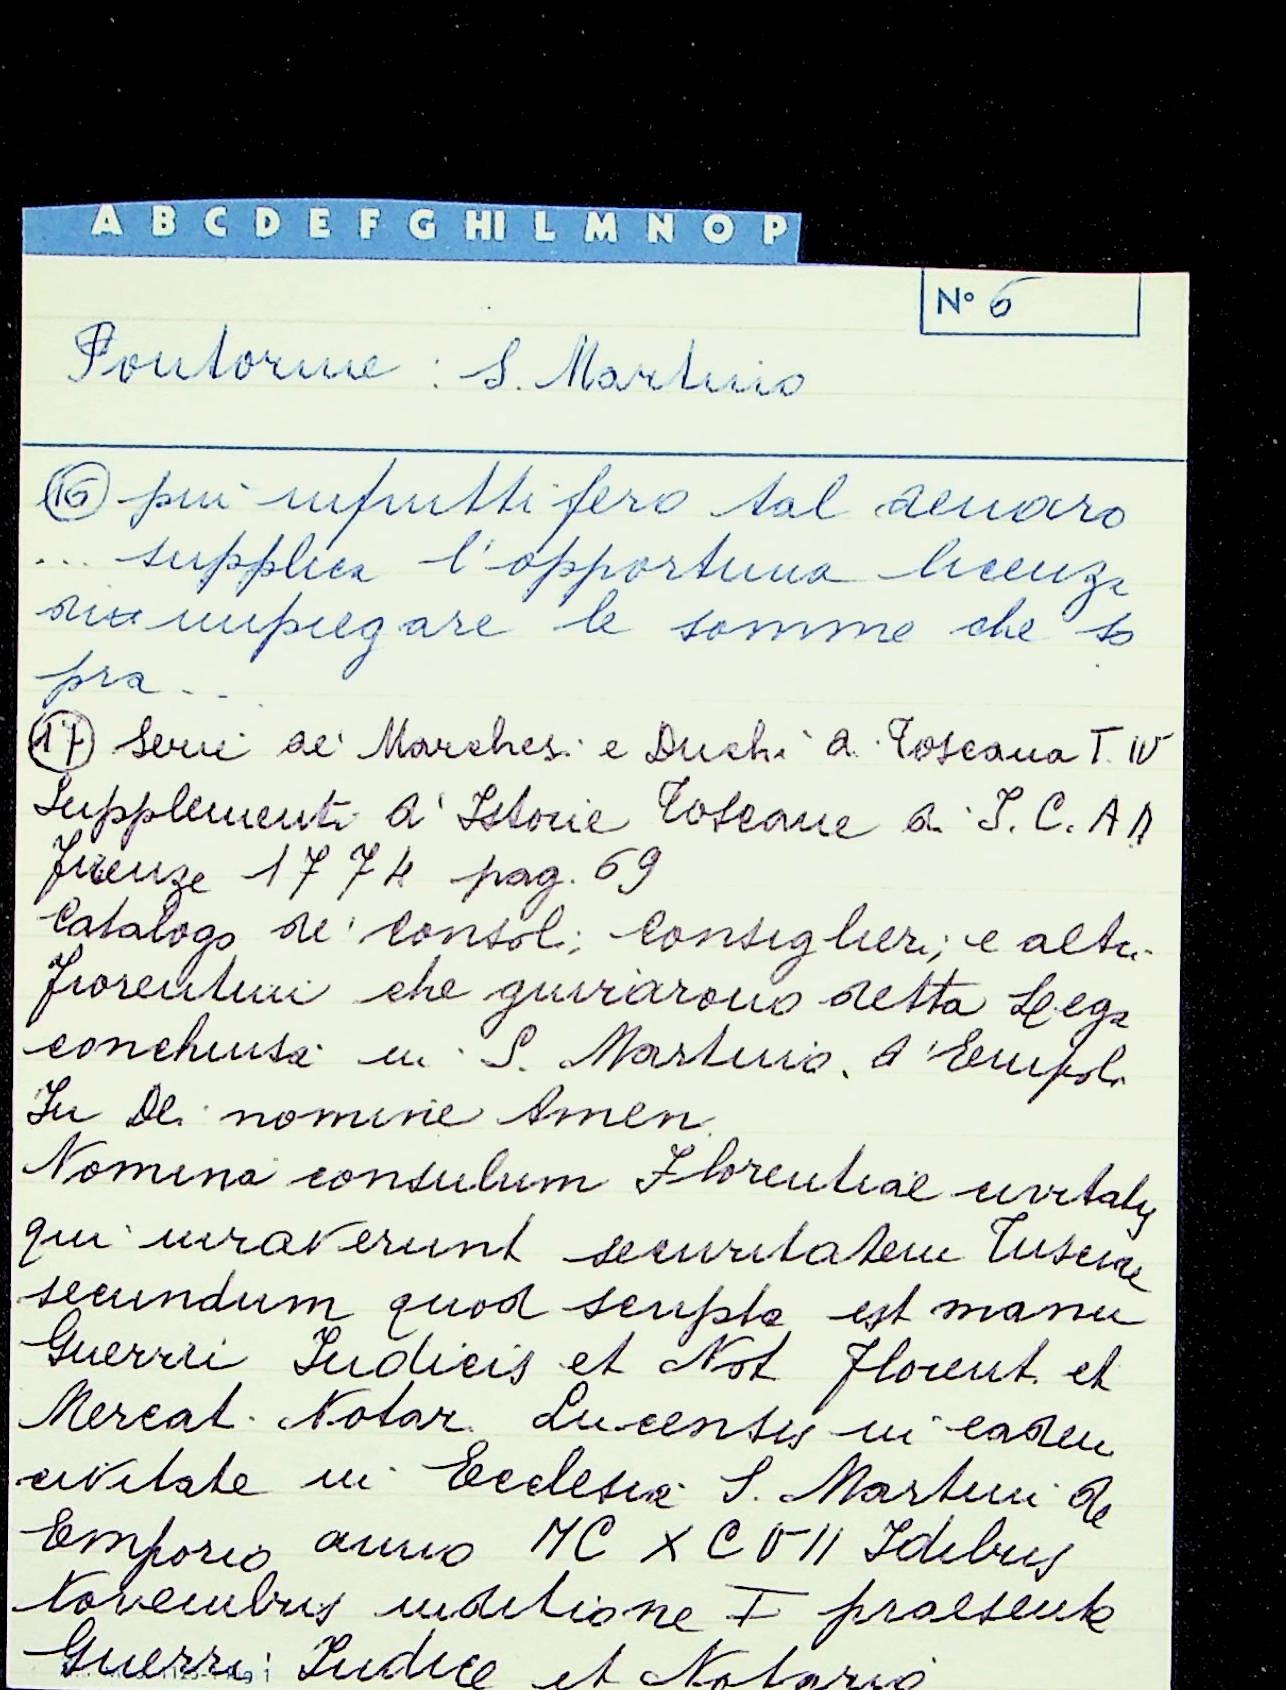 A B C D E F G HI L M N O P
N° 6
Pontorme : S. Martino
(16) più infruttifero tal denaro
... supplica l'opportuna licenza
rinimpiegare le somme che so
pra ...
(17) Serie de' Marchesi e Duchi di Toscana T. IV
Supplementi d'Istorie Toscane di I. C. A A
Firenze 1774 pag. 69
Catalogo de' Consoli, Consiglieri, e altri
Fiorentini che giurarono detta Lega
conchiusa in S. Martino d'Empoli
In Dei nomine Amen
Nomina consulum Florentiae civitatis
qui iuraverunt securitatem Tusciae
secundum quod scripta est manu
Guerrii Iudicis et Not Florent. et
Mercat. Notar. Lucensis in eadem
civitate in Ecclesia S. Martini de
Emporio anno MCXCVII Idibus
Novembris inditione I praesente
Guerrii Iudice et Notario